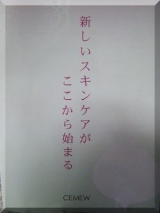 新しいスキンケアが
ここから始まる
CEMEW